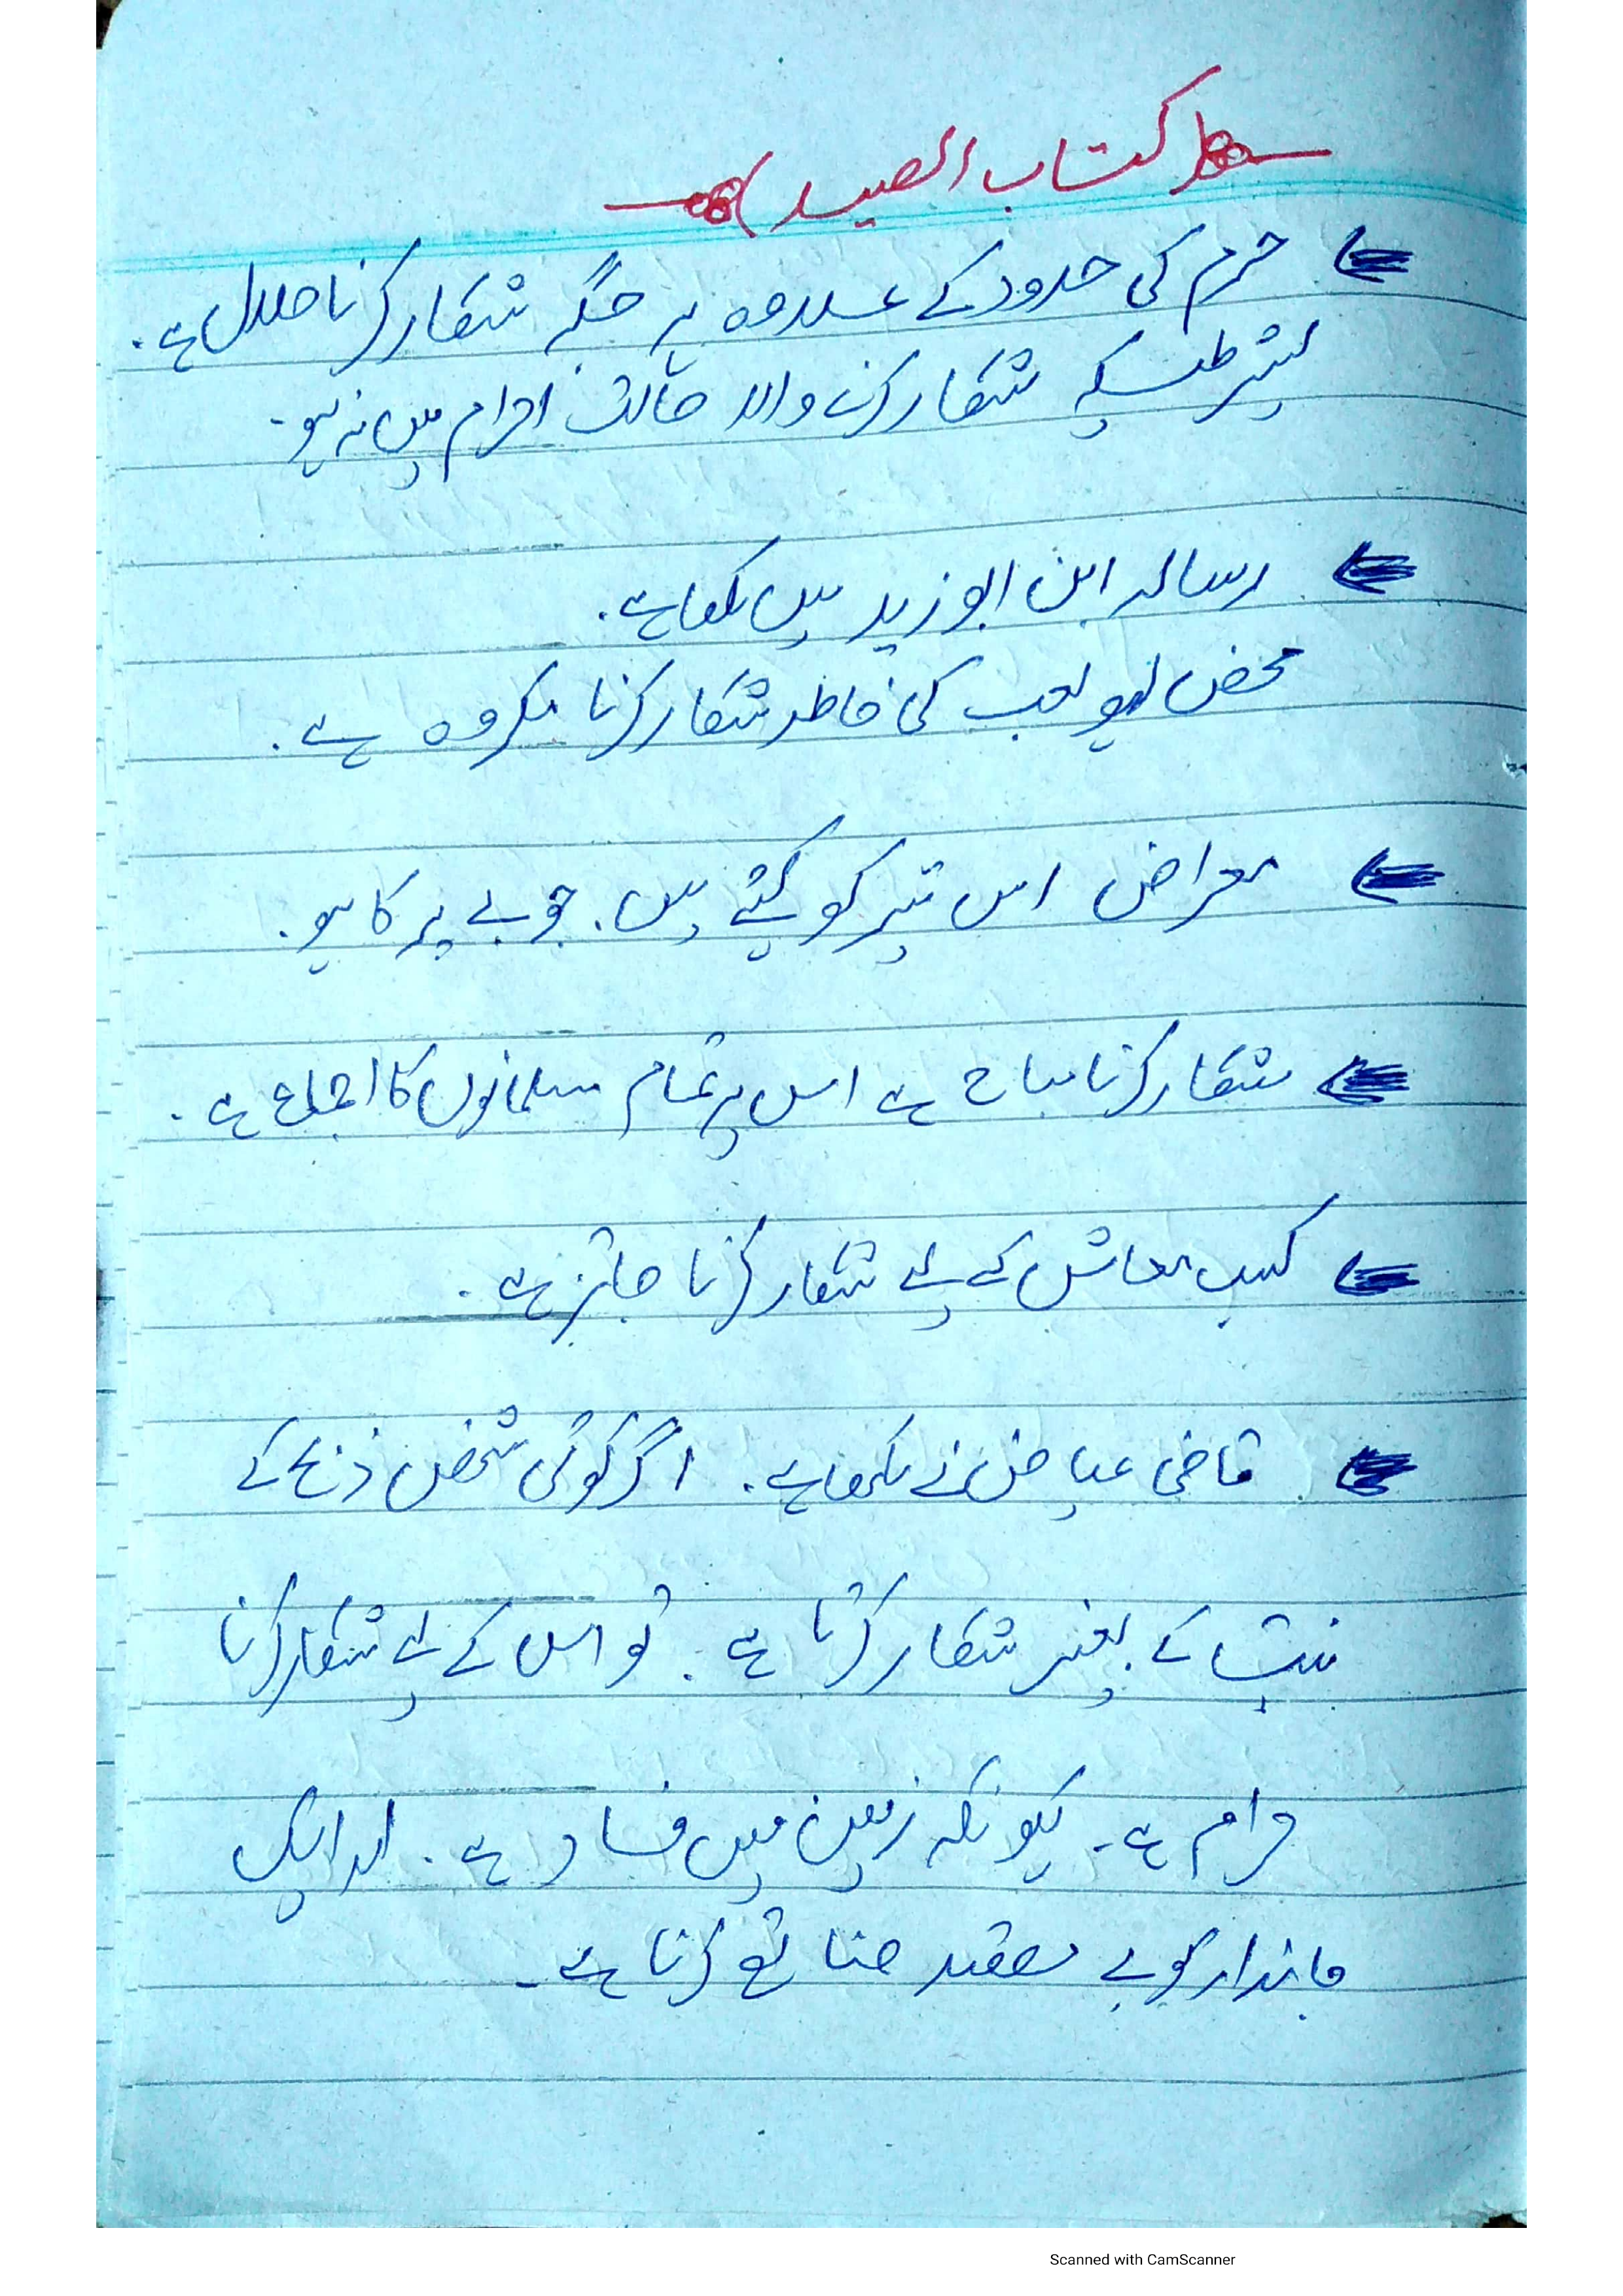 کتاب الصید
حرم کی حدود کے علاوہ ہر جگہ شکار کرنا حلال ہے۔
بشرطیکہ شکار کرنے والا حالت احرام میں نہ ہو۔
رسالہ ابن ابو زید میں لکھا ہے۔
محض لہو لعب کی خاطر شکار کرنا مکروہ ہے۔
معراض اس تیر کو کہتے ہیں۔ جو بے پر کا ہو۔
شکار کرنا مباح ہے اس پر تمام مسلمانوں کا اجماع ہے۔
کسب معاش کے لیے شکار کرنا جائز ہے۔
قاضی عیاض نے لکھا ہے۔ اگر کوئی شخص ذبح کے
نیت کے بغیر شکار کرتا ہے۔ تو اس کے لیے شکار کرنا
حرام ہے۔ کیونکہ زمین میں فساد ہے۔ اور ایک
جاندار کو بے مقصد ضائع کرنا ہے۔
Scanned with CamScanner